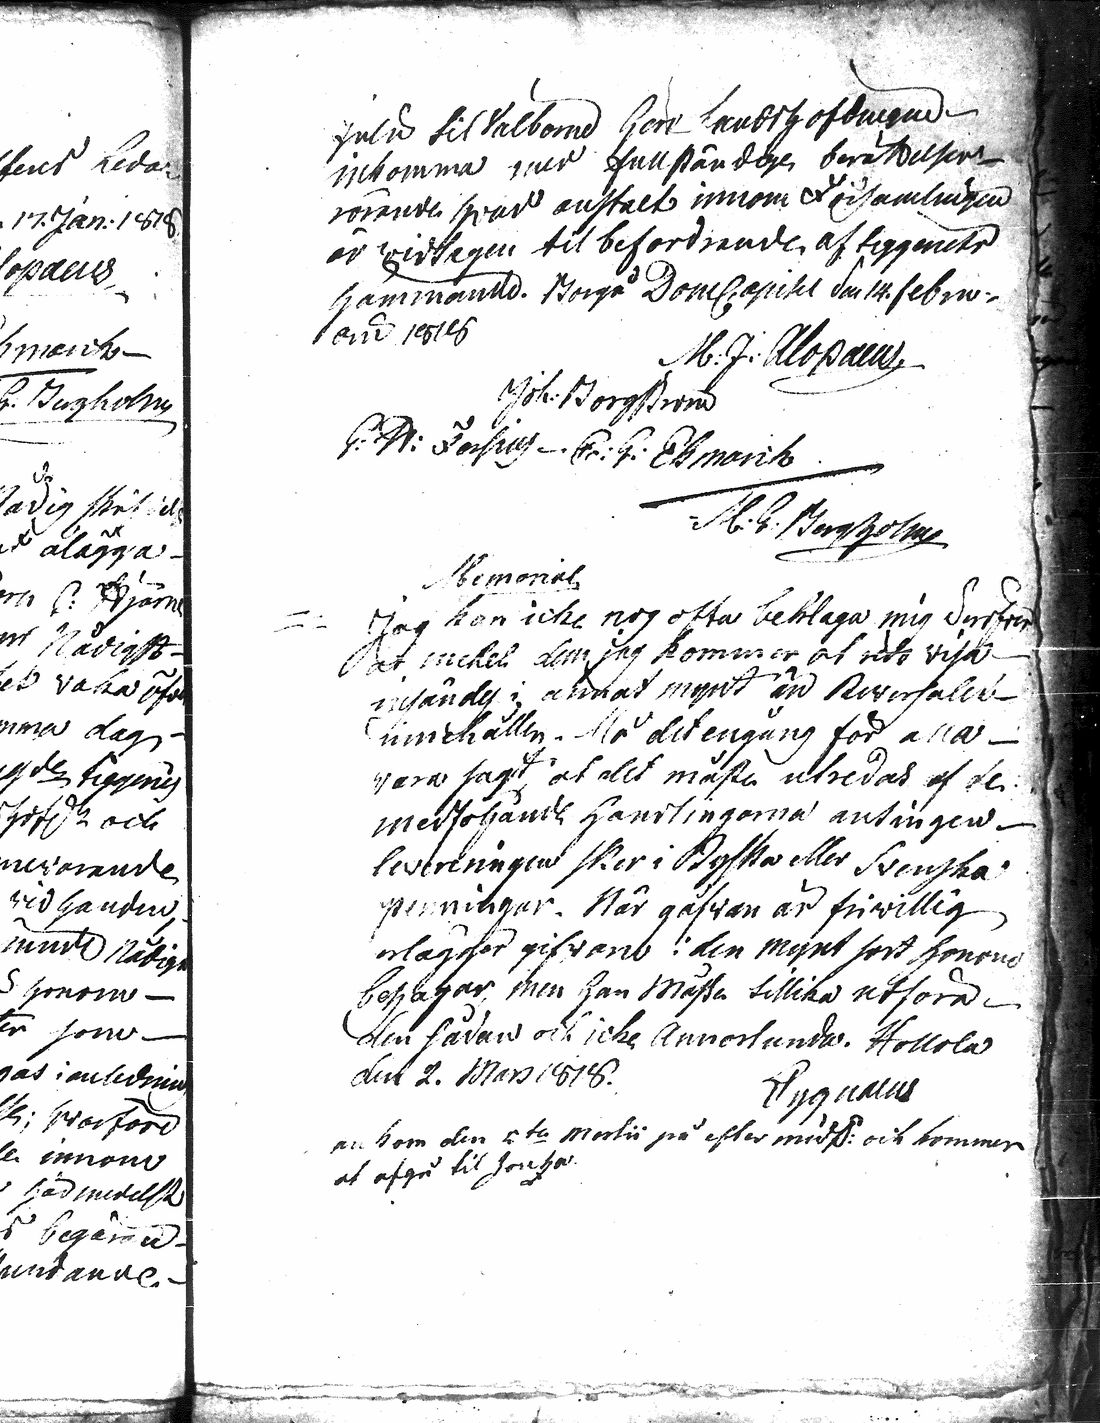 fens Leda
17. Jan. 1818
lopaeus
hmarck
Bergholm
Nådig
ålägga
Nådigst
vaka öfver
mma dag
Tiggeriets
och
närvarande
vid handen
Nådige
honom
ter som
gas i anledning
hvarföre
innom
begäran
til Välborne Herr Landshöfdingen
inkomma med fullständige berättelser
rörande hvad anstalt innom Församlingen
är vidtagen til befordrande af tiggeriets
hämmande. Borgå DomCapitel den 14. Febru-
arii 1818
M. J. Alopaeus
Joh. Borgström
G. A: Forsius. Er. G. Ehrmarck
M. G. Bergholm
Memorial
Jag kan icke nog ofta beklaga mig deröfver
at medel dem jag kommer at redovisa
insändes i annat mynt än Reversalet
innehåller. Må det engång för alla
vara sagt, at det måste utredas af de
medföljande Handlingarna antingen
levereringen sker i Ryska eller Svenska
penningar. När gåfvan är friwillig
erlägger gifvaren i den mynt sort honom
behagar, men han måste tillika utföra
den sådan och icke annorlunda. Hollola
den 2. Mars 1818.
Cygnaeus
an kom den 5te Martii på efter midd: och kommer
at afgå til